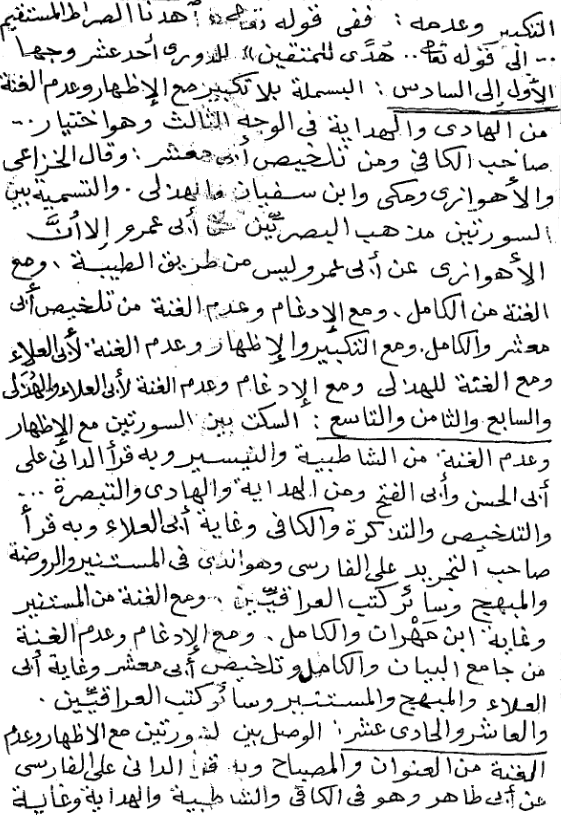 التكبير وعدمه : ففى قوله تعالى : اهدنا الصراط المستقيم
-- الى قوله تعالى .. هُدًى للمتقين)) للدورى أحد عشر وجها
الأول إلى السادس : البسملة بلا تكبير مع الإظهار وعدم الغنة
من الهادى والهداية فى الوجه الثالث وهو اختيار --
صاحب الكافى ومن تلخيص أبى معشر : وقال الخزاعى
والأهوازى ومكى وابن سفيان والهذلى . والتسمية بين
السورتين مذهب البصريّين عن أبى عمرو إلا أنَّ
الأهوازى عن أبى عمرو ليس من طريق الطيبة ، ومع
الغنة من الكامل . ومع الإدغام وعدم الغنة من تلخيص أبى
معشر والكامل . ومع التكبير والإظهار وعدم الغنة لأبى العلاء
ومع الغنة للهذلى ومع الإدغام وعدم الغنة لأبى العلاء والهُذلى
والسابع والثامن والتاسع : السكت بين السورتين مع الإظهار
وعدم الغنة من الشاطبية والتيسير وبه قرأ الدانى على
أبى الحسن وأبى الفتح ومن الهداية والهادى والتبصرة ...
والتلخيص والتذكرة والكافى وغاية أبى العلاء وبه قرأ
صاحب التجريد على الفارسى وهو الذى فى المستنير والروضة
والمبهج وسائر كتب العراقيّين . ومع الغنة من المستنير
وغاية ابن مَهْرات والكامل . ومع الإدغام وعدم الغنة
من جامع البيان والكامل وتلخيص أبى معشر وغاية أبى
العلاء والمبهج والمستنير وسائر كتب العراقيّين .
والعاشر والحادى عشر : الوصل بين السورتين مع الاظهار وعدم
الغنة من العنوان والمصباح وبه قرأ الدانى على الفارسى
عن أبى طاهر وهو فى الكافى والشاطبية والهداية وغاية